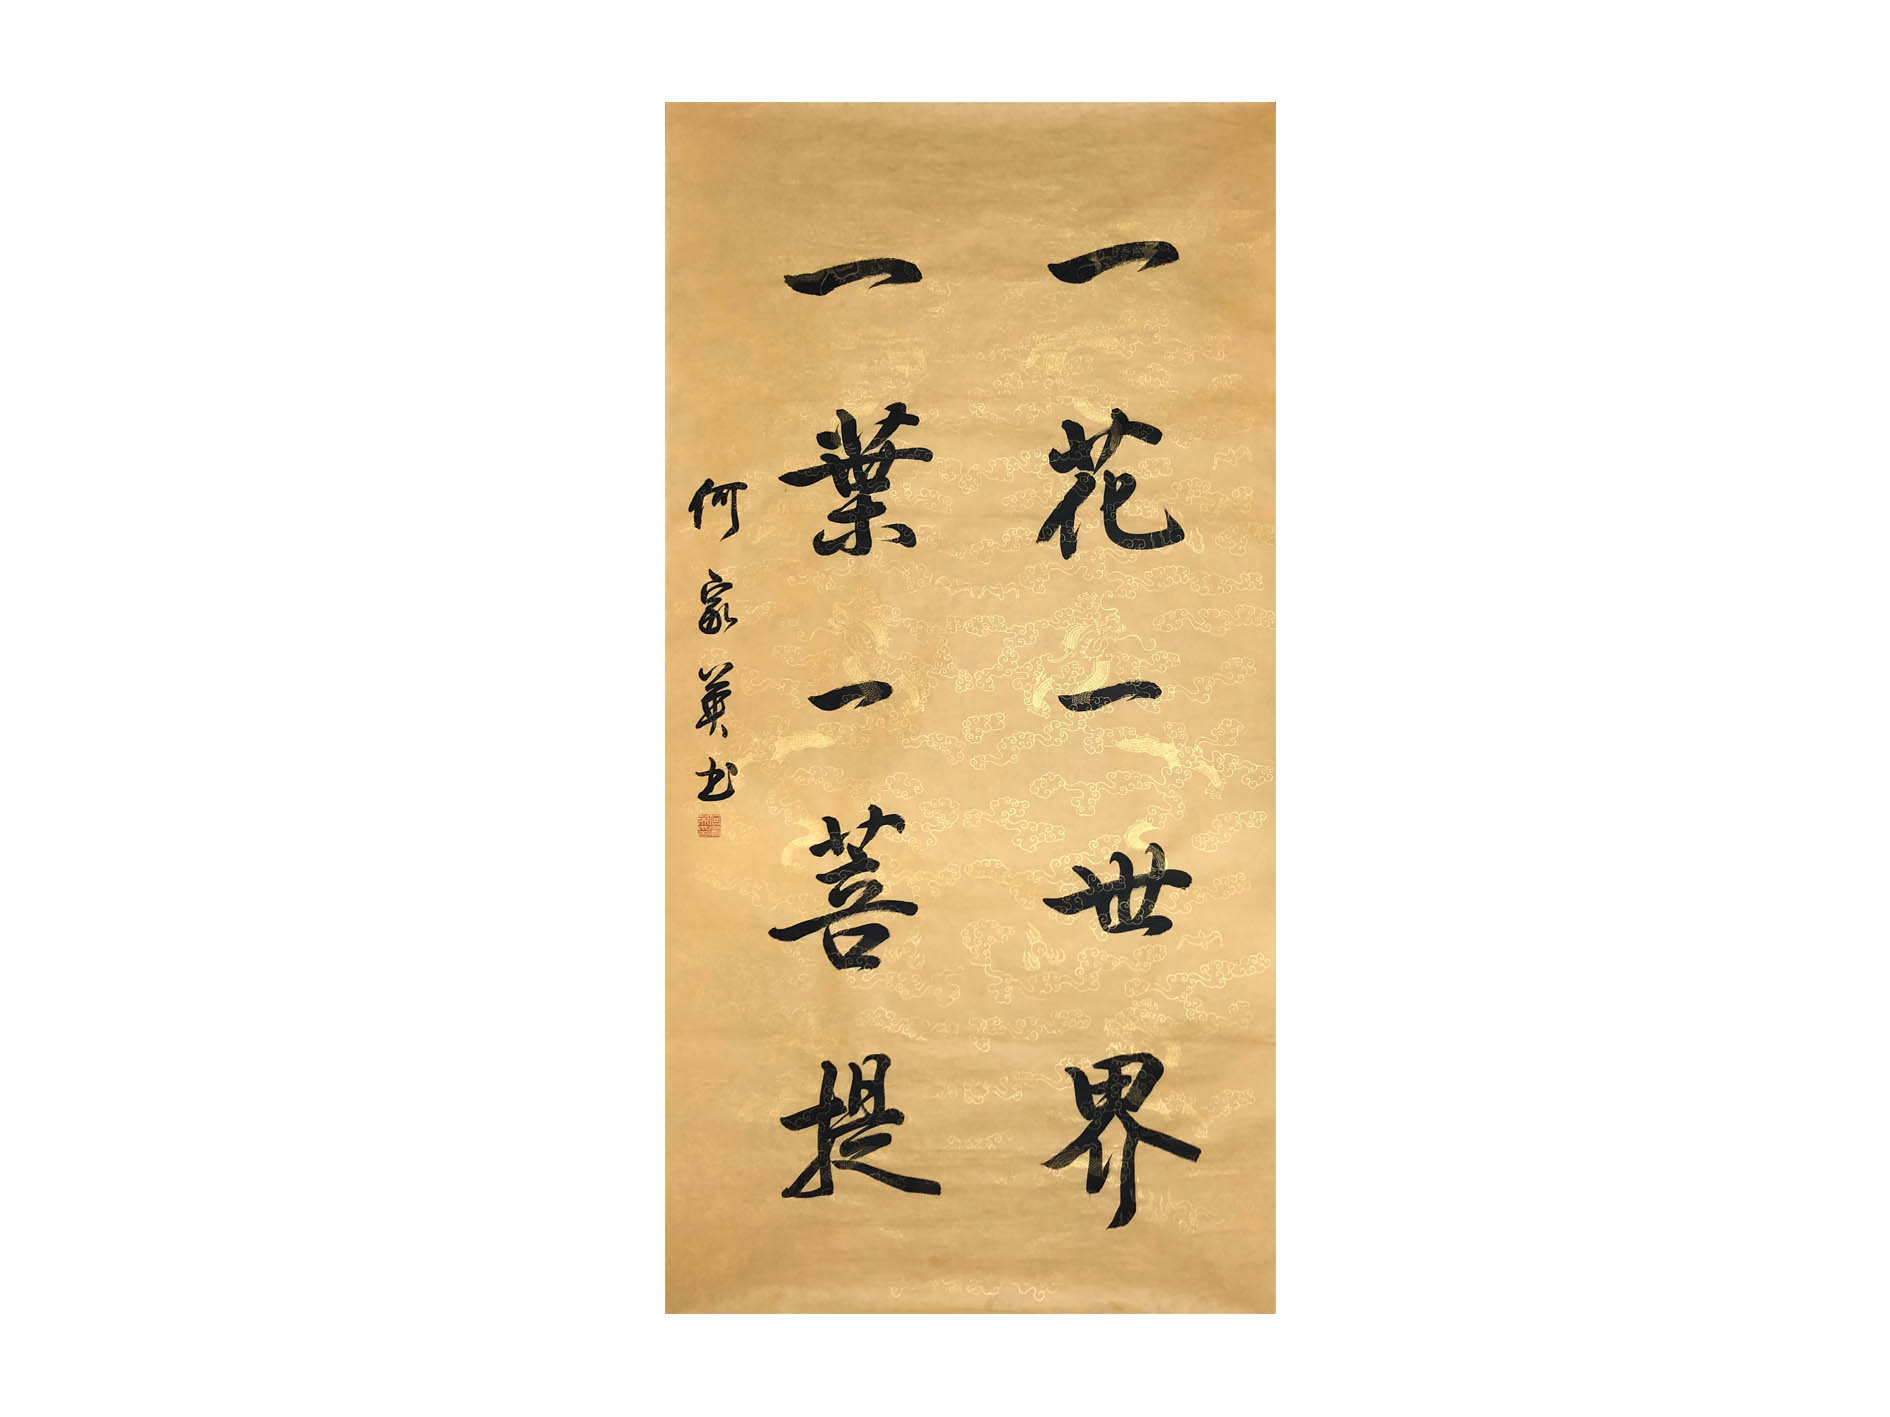 一花一世界
一葉一菩提
何家英书